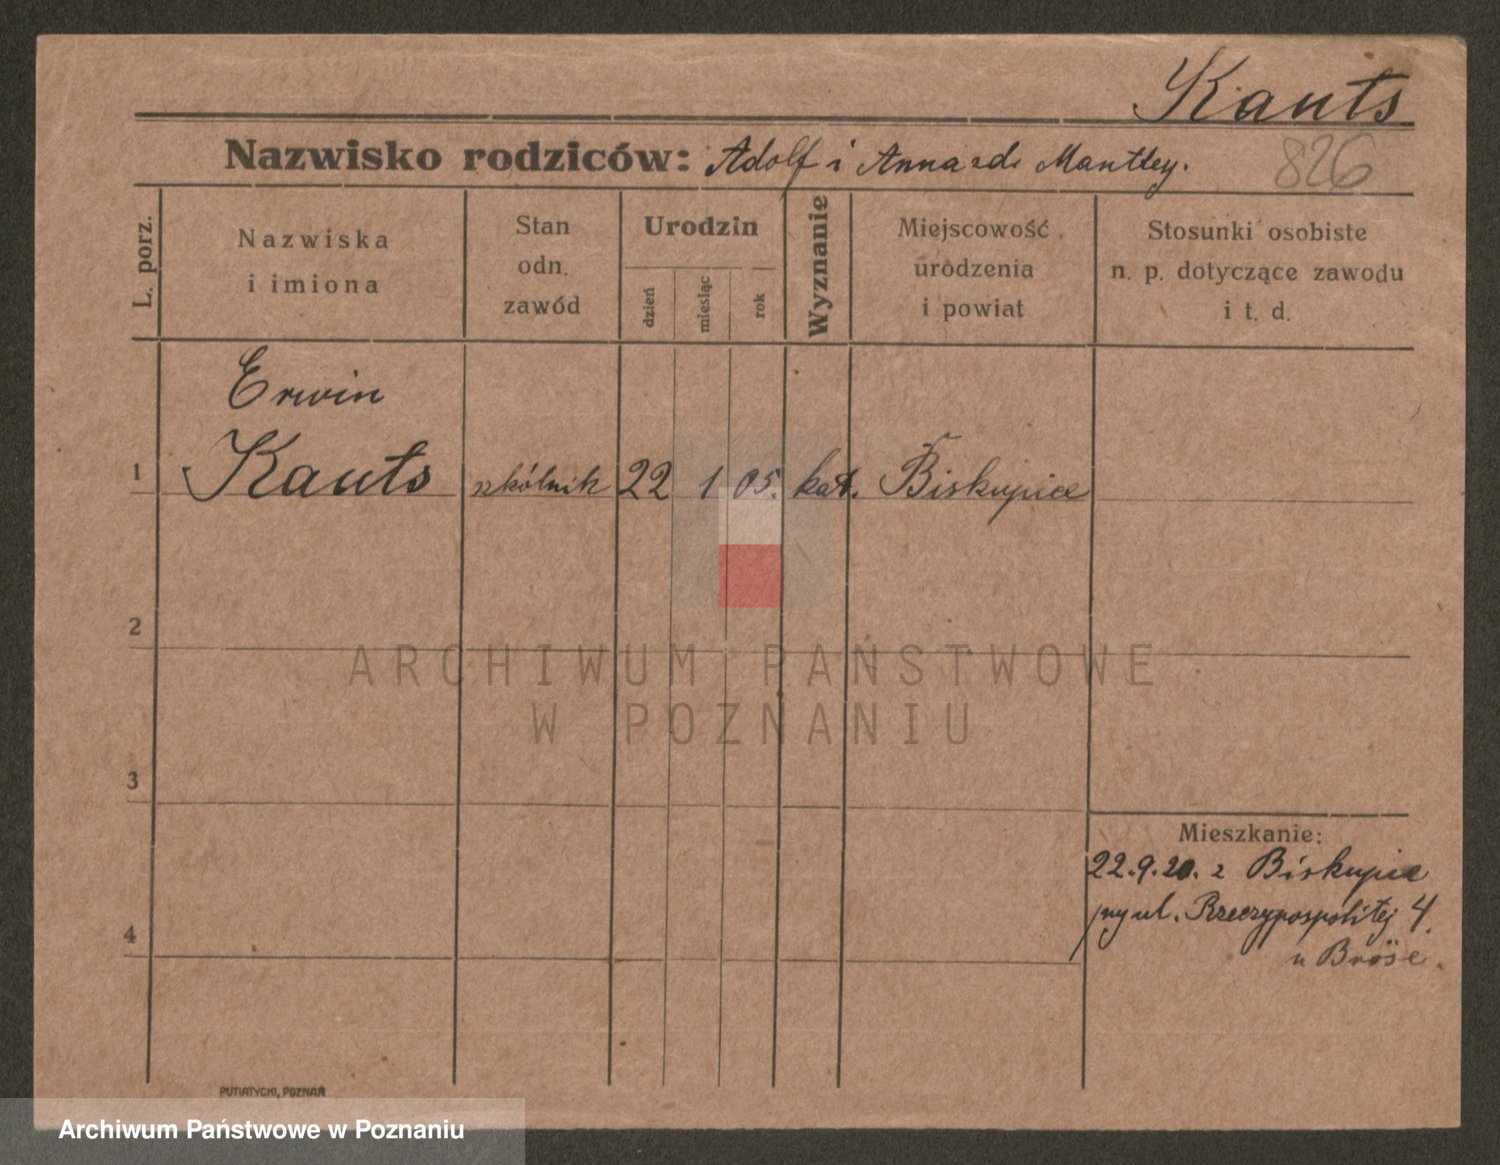 Kauts
Nazwisko rodziców: Adolf i Anna zd. Mantley.
826
L. porz.
Nazwiska
i imiona
Stan
odn.
zawód
Urodzin
dzień
miesiąc
rok
Wyznanie
Miejscowość
urodzenia
i powiat
Stosunki osobiste
n. p. dotyczące zawodu
i t. d.
Erwin
1 Kauts szkólnik 22 1 05. kat. Biskupice
2
ARCHIWUM PAŃSTWOWE
W POZNANIU
3
Mieszkanie:
22.9.20. z Biskupic
przy ul. Rzeczypospolitej 4.
u Bröse.
4
PUTIATYCKI, POZNAŃ
Archiwum Państwowe w Poznaniu